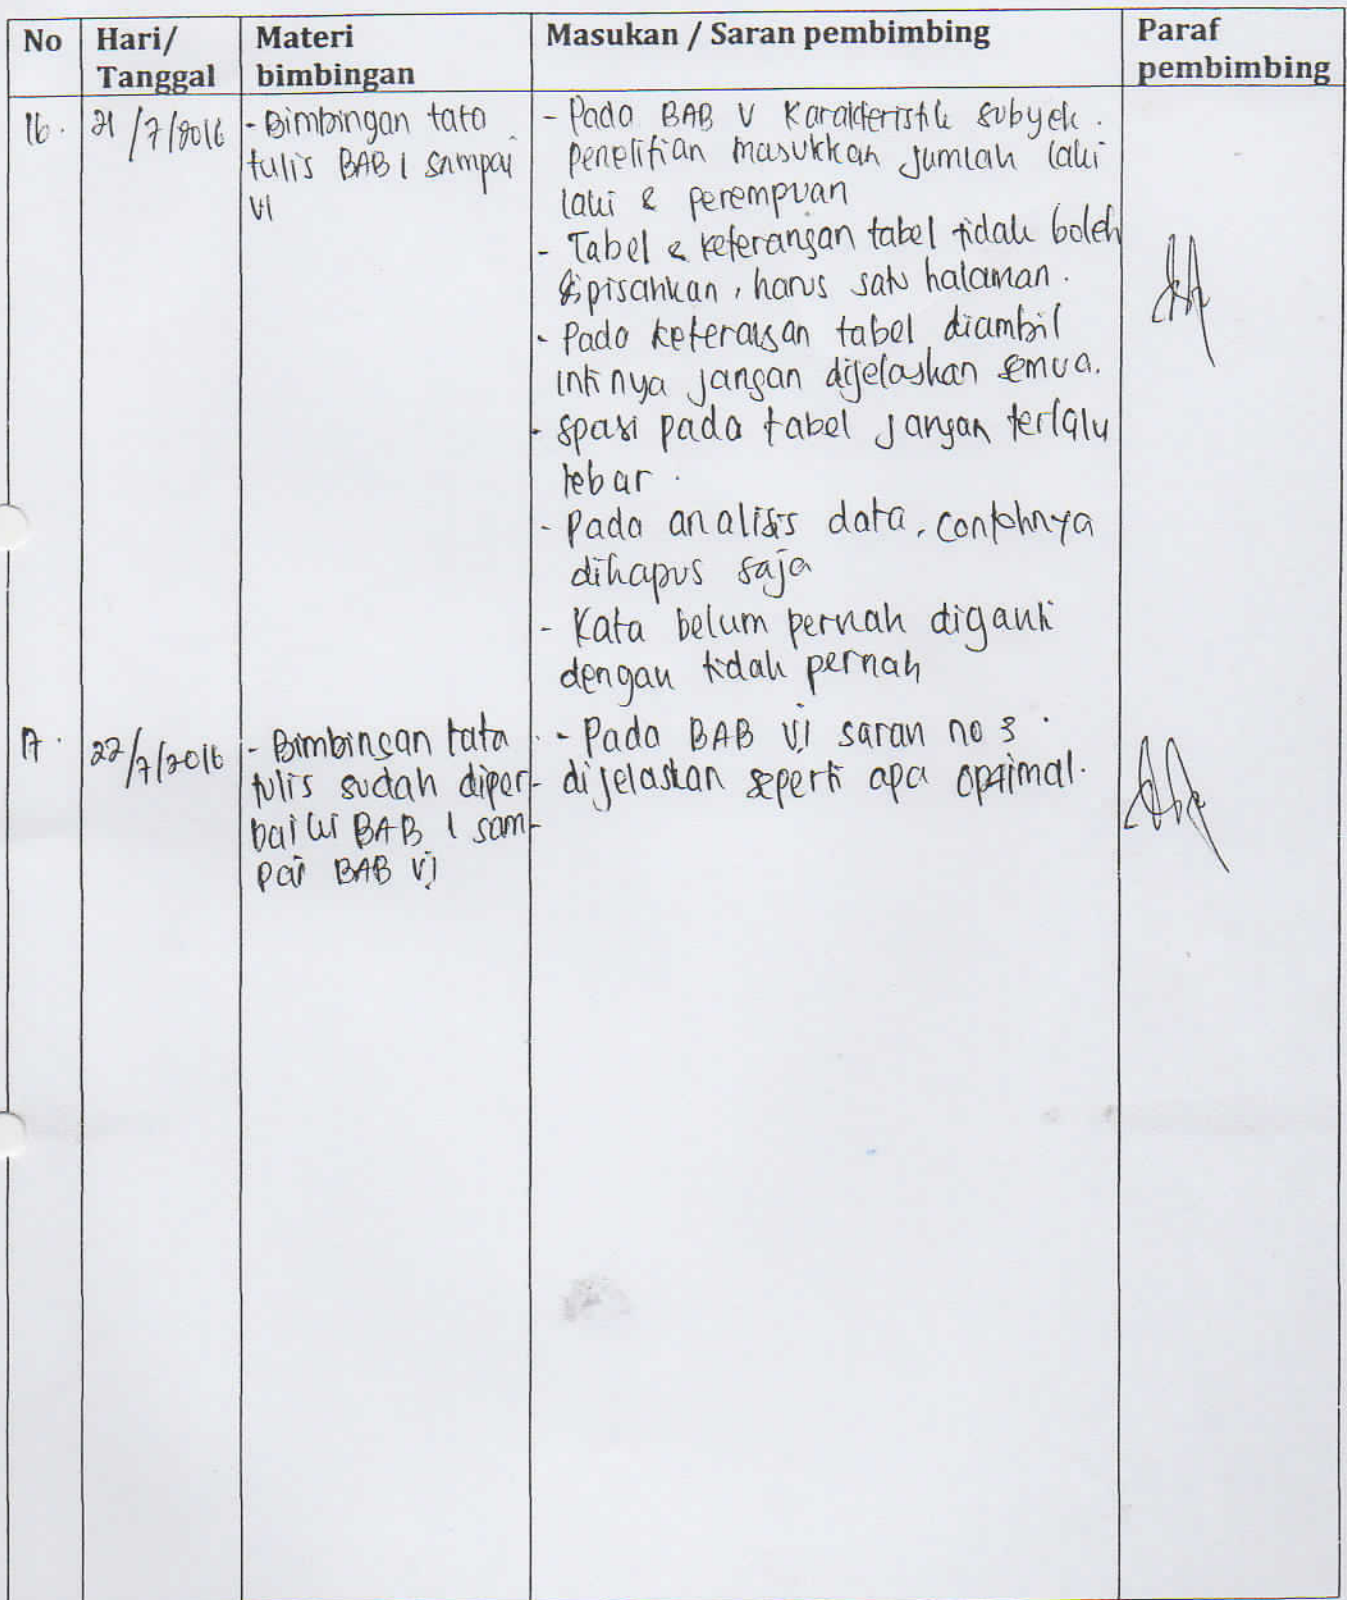 No Hari/ Materi Masukan / Saran pembimbing Paraf
Tanggal bimbingan pembimbing
16. 21/7/2016 - Bimbingan tata tulis BAB I sampai VI
- Pada BAB V Karakteristik subyek.
penelitian masukkan jumlah laki
laki & perempuan
- Tabel & keterangan tabel tidak boleh
dipisahkan, harus satu halaman.
- Pada keterangan tabel diambil
intinya jangan dijelaskan semua.
- spasi pada tabel jangan terlalu
lebar.
- Pada analisis data, contohnya
dihapus saja
- Kata belum pernah diganti
dengan tidak pernah
17. 22/7/2016 - Bimbingan tata
tulis sudah diper-
baiki BAB I sam-
pai BAB VI
- Pada BAB VI saran no 3.
dijelaskan seperti apa optimal.